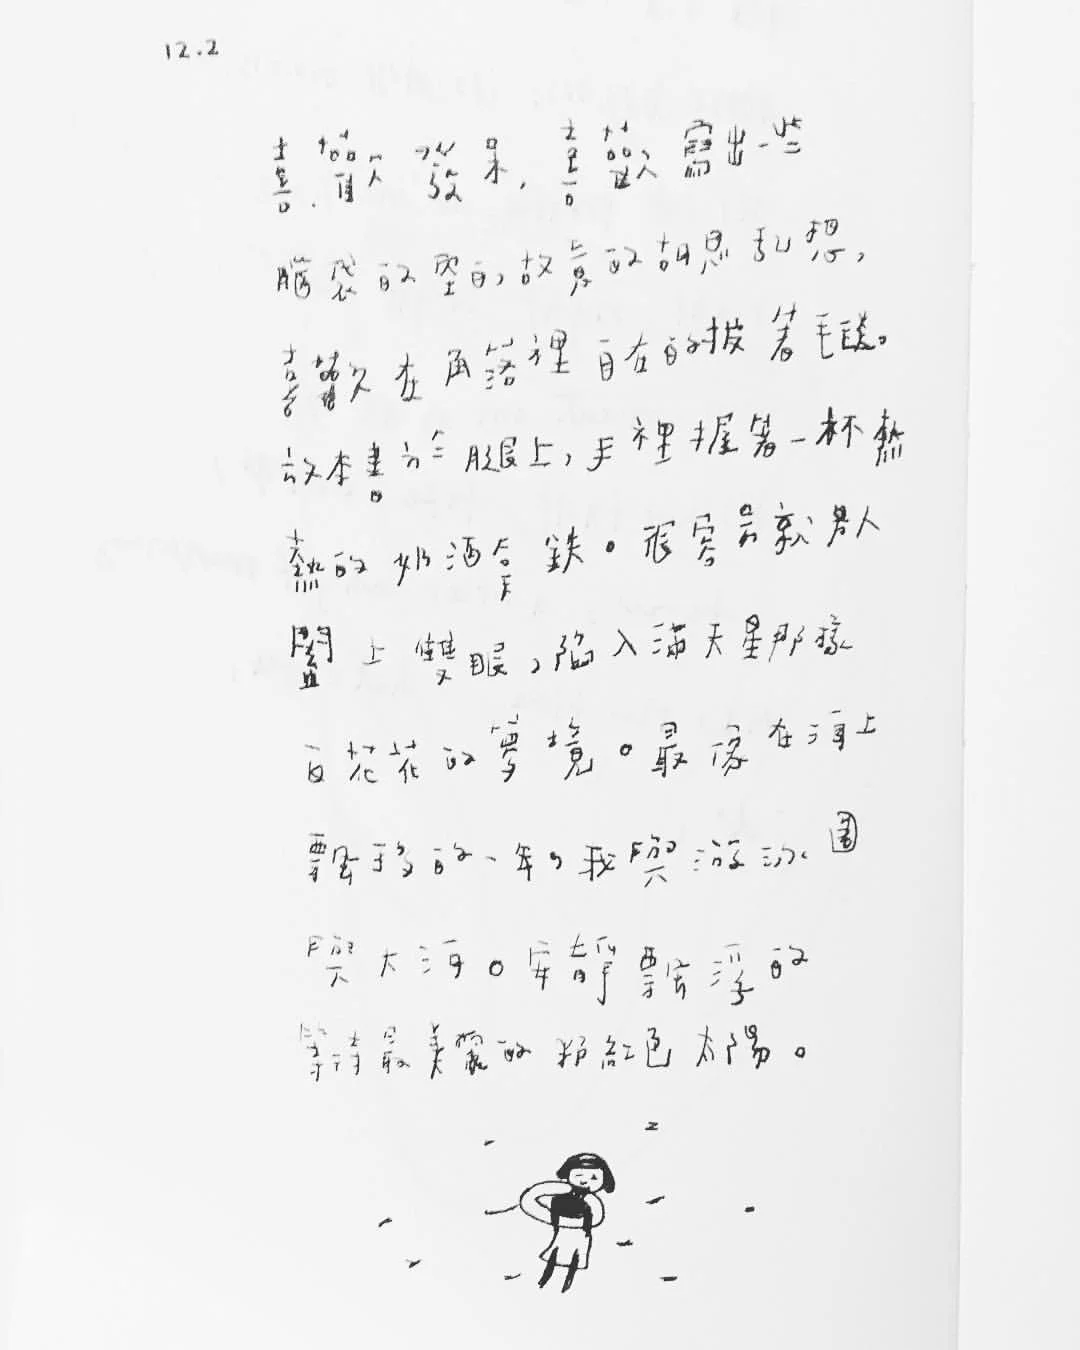 12.2
喜歡發呆，喜歡寫出一些
腦袋的空白，故意的胡思乱想，
喜歡在角落裡自在的披著毛毯。
放本書於腿上，手裡握著一杯熱
熱的奶酒拿鉄。很容易就男人
闔上雙眼，陷入滿天星那樣
百花花的夢境。最像在海上
飄移的一年。我與游泳圈
與大海。安靜飄浮的
等待最美麗的粉紅色太陽。